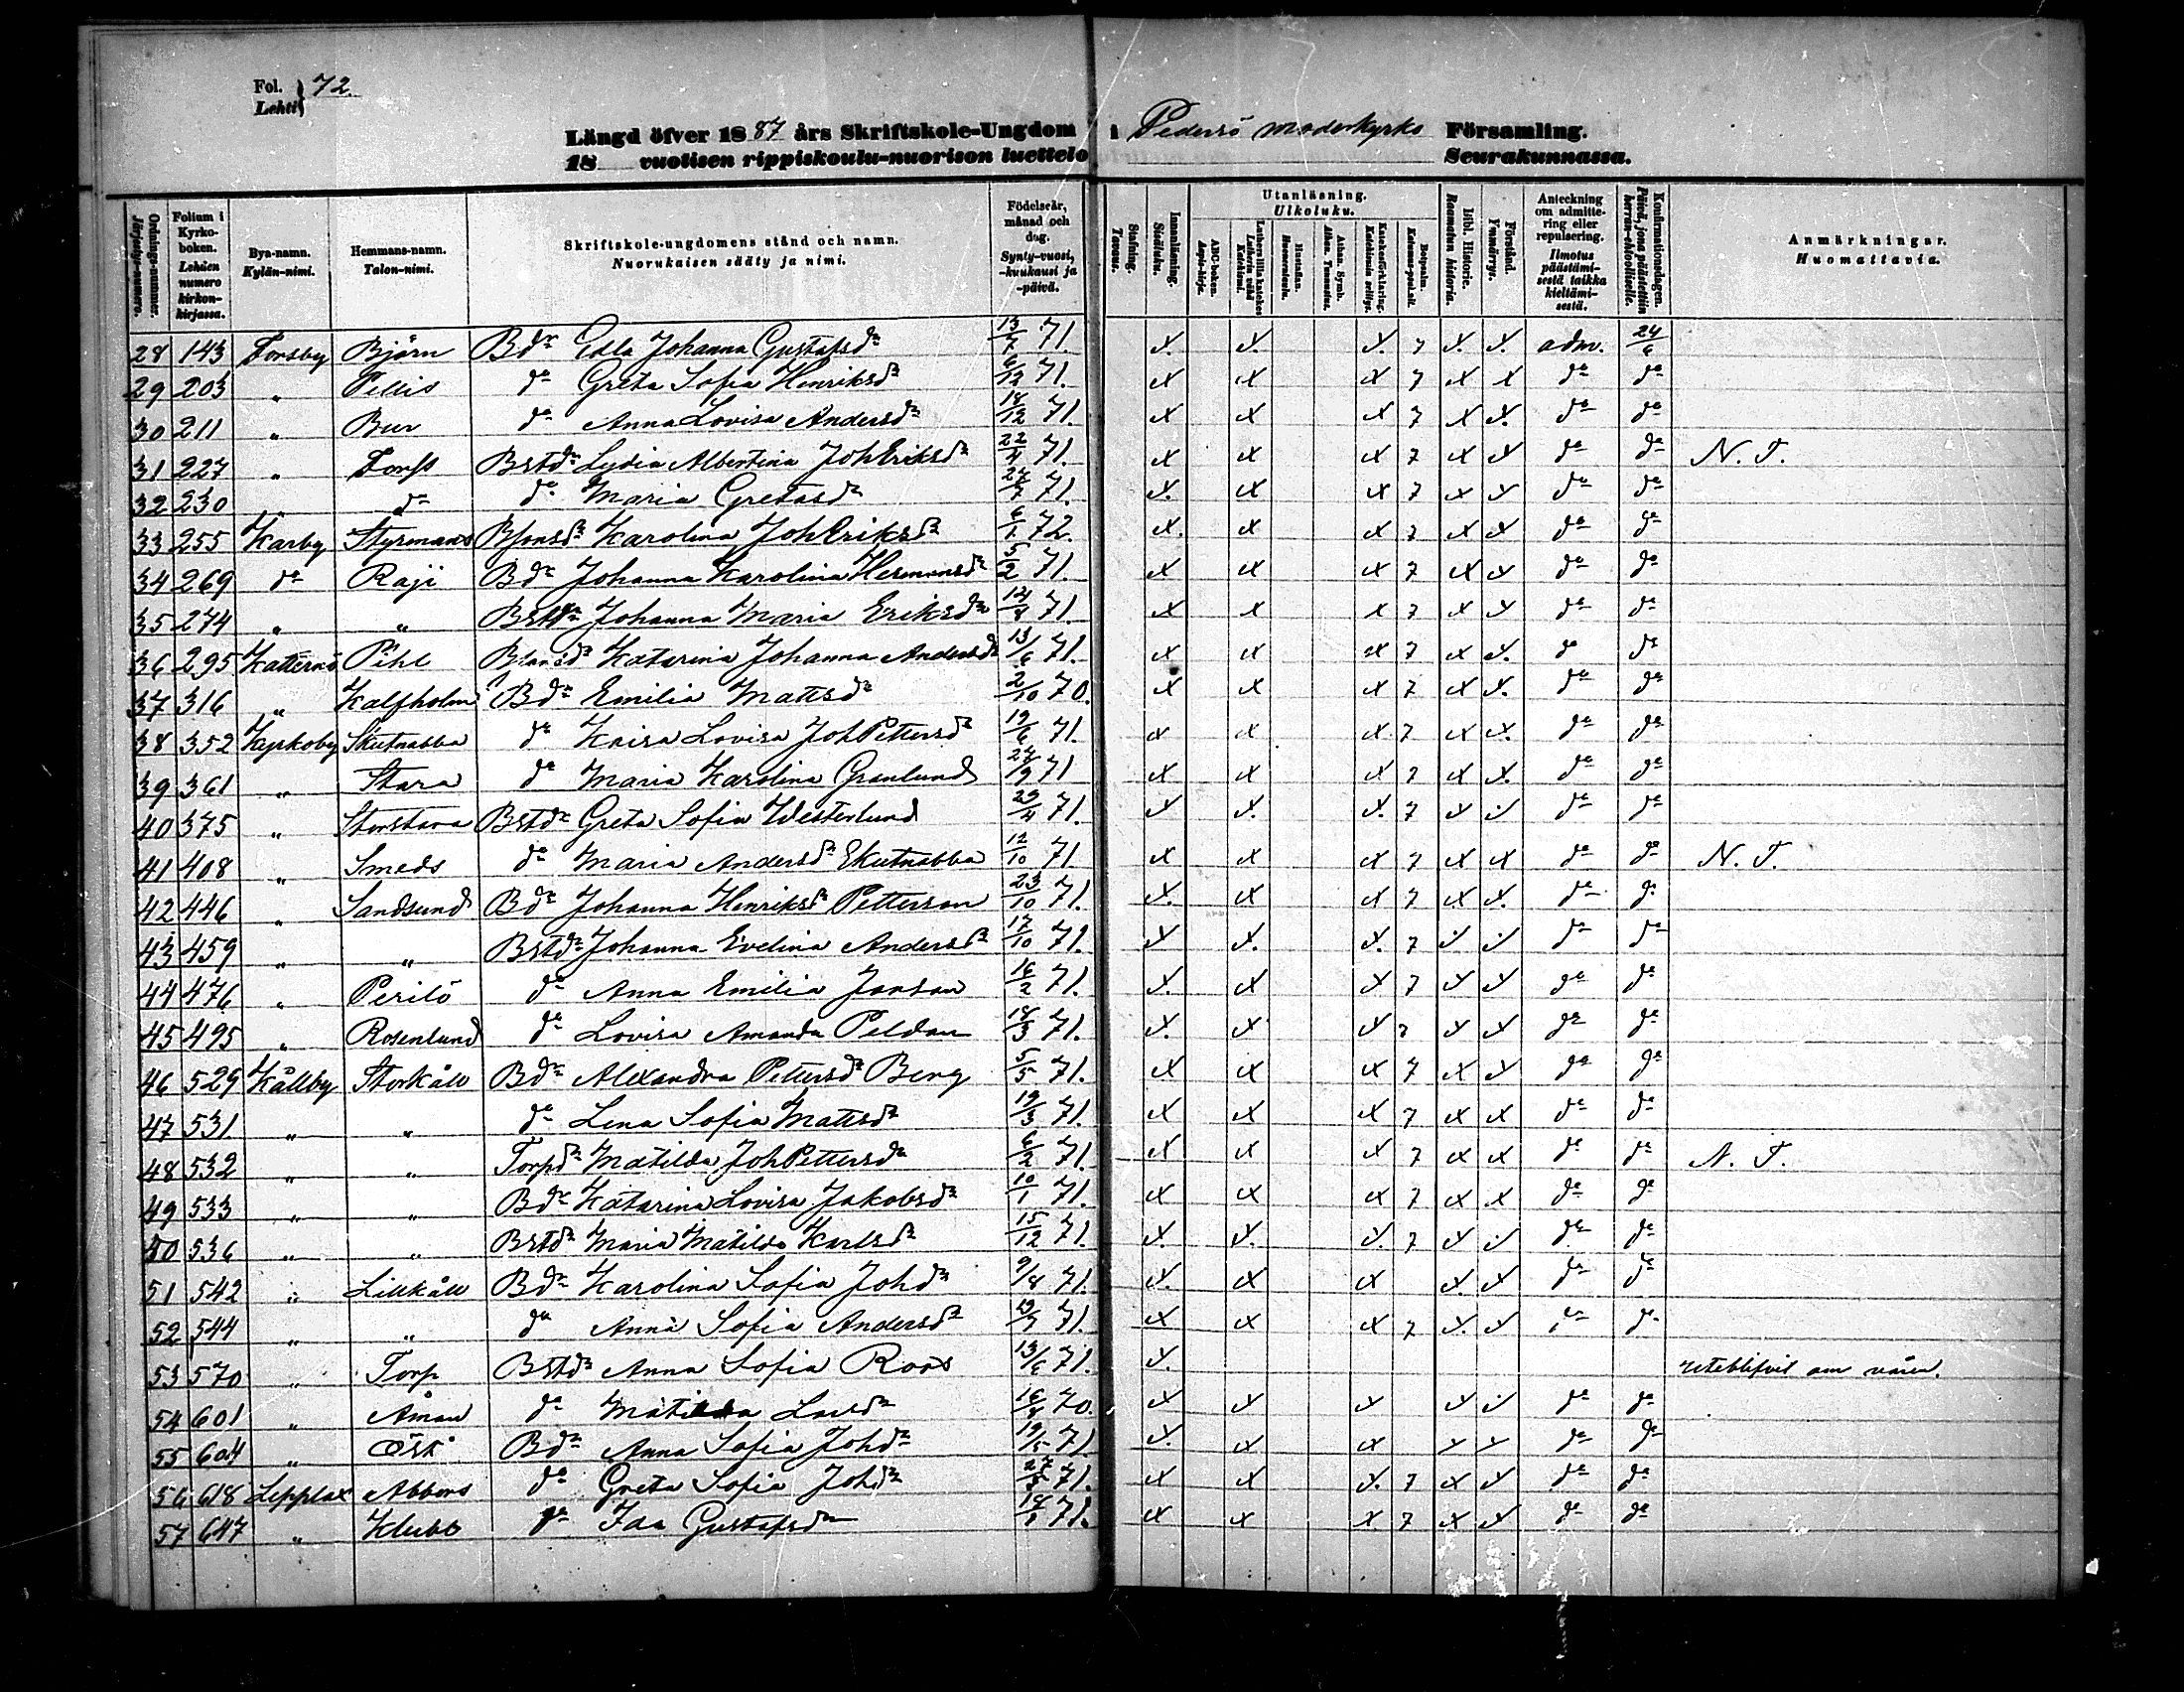 Fol. 72.
Lehti
Längd öfver 1887 års Skriftskole-Ungdom i Pedersö moderkyrko Församling.
18 vuotisen rippiskoulu-nuorison luettelo Seurakunnassa.
Ordnings-nummer. Järjestys-numero. Folium i Kyrko-boken. Lehden numero kirkon-kirjassa. Bya-namn. Kylän-nimi. Hemmans-namn. Talon-nimi. Skriftskole-ungdomens stånd och namn. Nuorukaisen sääty ja nimi. Födelseår, månad och dag. Synty-vuosi, -kuukausi ja -päivä. Stafning. Tavaus. Innanläsning. Sisäluku. Utanläsning. Ulkoluku. ABC-boken. Aapis-kirja. Luthers lilla katekes Lutherin vähä Katekismi. Hustaflan. Huoneentaulu. Athan. Symb. Athan. Tunnustus. Katekesförklaring. Katekismin selitys. Botpsalm. Katumus-psalmit. Bibl. Historie. Raamatun historia. Förstånd. Ymmärrys. Anteckning om admittering eller repulsering. Ilmotus päästämisestä taikka kieltämisestä. Konfirmationsdagen. Päivä, jona päästettiin herran-ehtoolliselle. Anmärkningar. Huomattavia.
28 143 Forsby Björn Bdr Edla Johanna Gustafsdr 13/7 71. x. x. x. 7 x. x. adm. 24/6
29 203 " Pellis do Greta Sofia Henriksdr 6/12 71. x x x 7 x x do do
30 211 " Bur do Anna Lovisa Andersdr 18/12 71. x x x 7 x x. do do
31 227 " Forss Bstdr Lydia Albertina JohEriksdr 22/4 71. x x x 7 x x do do N. T.
32 230 do do Maria Gretasdr 27/7 71. x. x x 7 x x do do
33 255 Karby Styrmans Bsonsdr Karolina JohEriksdr 6/1 72. x. x x 7 x x do do
34 269 do Raji Bdr Johanna Karolina Hermansdr 5/2 71. x x x 7 x x do do
35 274 " " Bstdr Johanna Maria Eriksdr 71. x x x 7 x x do do
36 295 Katternö Pihl Katarina Johanna Andersdr 13/6 71. x x x 7 x x. do do
37 316 " Kalfholm Bdr Emilia Mattsdr 2/10 70. x x x 7 x x. do do
38 352 Kyrkoby Skutnabba do Kaisa Lovisa JohPettersdr 19/6 71. x x x 7 x x. do do
39 361 " Stara do Maria Karolina Granlund 27/9 71 x x x 7 x x. do do
40 375 " Storstara Bstdr Greta Sofia Westerlund 29/4 71. x x. x. 7 x x do do
41 408 " Smeds do Maria Andersdr Skutnabba 12/10 71 x x x 7 x x do do N. T.
42 446 " Sandsund Bdr Johanna Henriksdr Petterson 23/10 71. x. x x 7 x x. do do
43 459 " " Bstdr Johanna Evelina Andersdr 17/10 71. x x. x. 7 x x do do
44 476 " Perilö do Anna Emilia Janson 16/2 71. x. x x 7 x x do do
45 495 " Rosenlund do Lovisa Amanda Peldan 18/3 71. x. x x 7 x x do do
46 529 Kållby Storkåll Bdr Alexandra Pettersdr Berg 5/5 71. x x x 7 x x do do
47 531 " " do Lena Sofia Mattsdr 19/3 71. x x x 7 x x do do
48 532 " " Torpdr Matilda JohPettersdr 6/2 71. x x x 7 x x do do N. T.
49 533 " " Bdr Katarina Lovisa Jakobsdr 10/1 71. x x x 7 x x do do
50 536 " " Bstdr Maria Matilda Karlsdr 15/12 71. x. x. x. 7 x x do do
51 542 " Lillkåll Bdr Karolina Sofia Johdr 9/8 71. x. x x x. x do do
52 544 " " do Anna Sofia Andersdr 29/7 71. x x x 7 x. x do do
53 570 " Torp Bstdr Anna Sofia Roos 13/6 71. x. uteblifvit om våren.
54 601 " Åman do Matilda Larsdr 16/8 70. x x x x x do do
55 604 " Öst Bdr Anna Sofia Johdr 19/5 71 x. x x x x do do
56 618 Lepplax Abbors do Greta Sofia Johdr 71. x x x. 7 x x do do
57 647 " Klubb do Ida Gustafsdr 71. x x x 7 x x do do